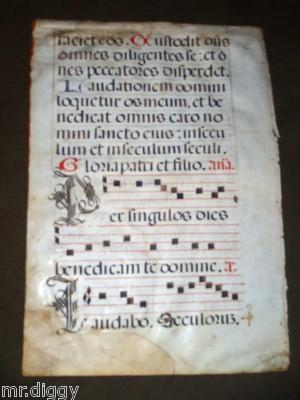 faciet eos. Custodit dñs
omnes diligentes se: et õ
nes peccatores disperdet.
Laudationem domini
loquetur os meum, et be
nedicat omnis caro no
mini sancto eius: in secu
lum et in seculum seculi.
Gloria patri et filio. Aña.
Per singulos dies
benedicam te domine.
Laudabo. Seculorum.
mr.diggy